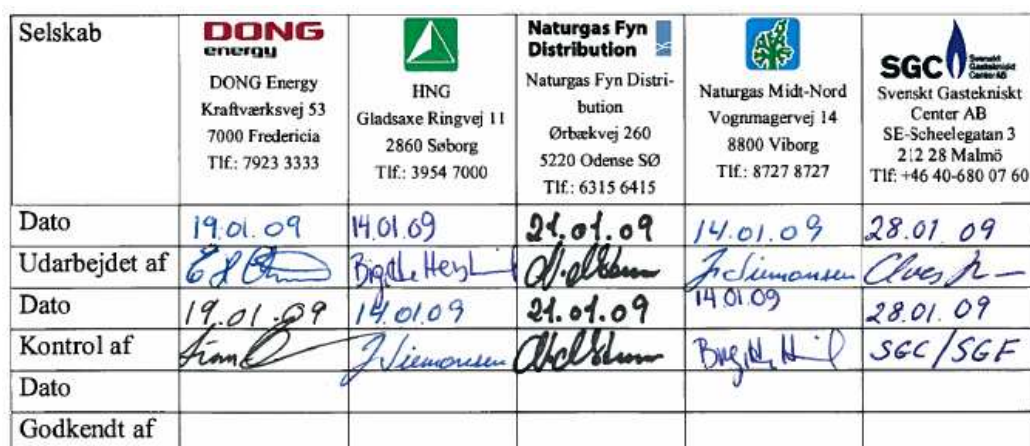 Selskab
DONG
energy
DONG Energy
Kraftværksvej 53
7000 Fredericia
Tlf.: 7923 3333
HNG
Gladsaxe Ringvej 11
2860 Søborg
Tlf.: 3954 7000
Naturgas Fyn
Distribution
Naturgas Fyn Distri-
bution
Ørbækvej 260
5220 Odense SØ
Tlf.: 6315 6415
Naturgas Midt-Nord
Vognmagervej 14
8800 Viborg
Tlf.: 8727 8727
SGC Svenskt Gastekniskt Center AB
Svenskt Gastekniskt
Center AB
SE-Scheelegatan 3
212 28 Malmö
Tlf: +46 40-680 07 60
Dato 19.01.09 14.01.09 21.01.09 14.01.09 28.01 09
Udarbejdet af J. Siemonsen
Dato 19.01.09 14.01.09 21.01.09 14.01.09 28.01.09
Kontrol af J Siemonsen SGC/SGF
Dato
Godkendt af